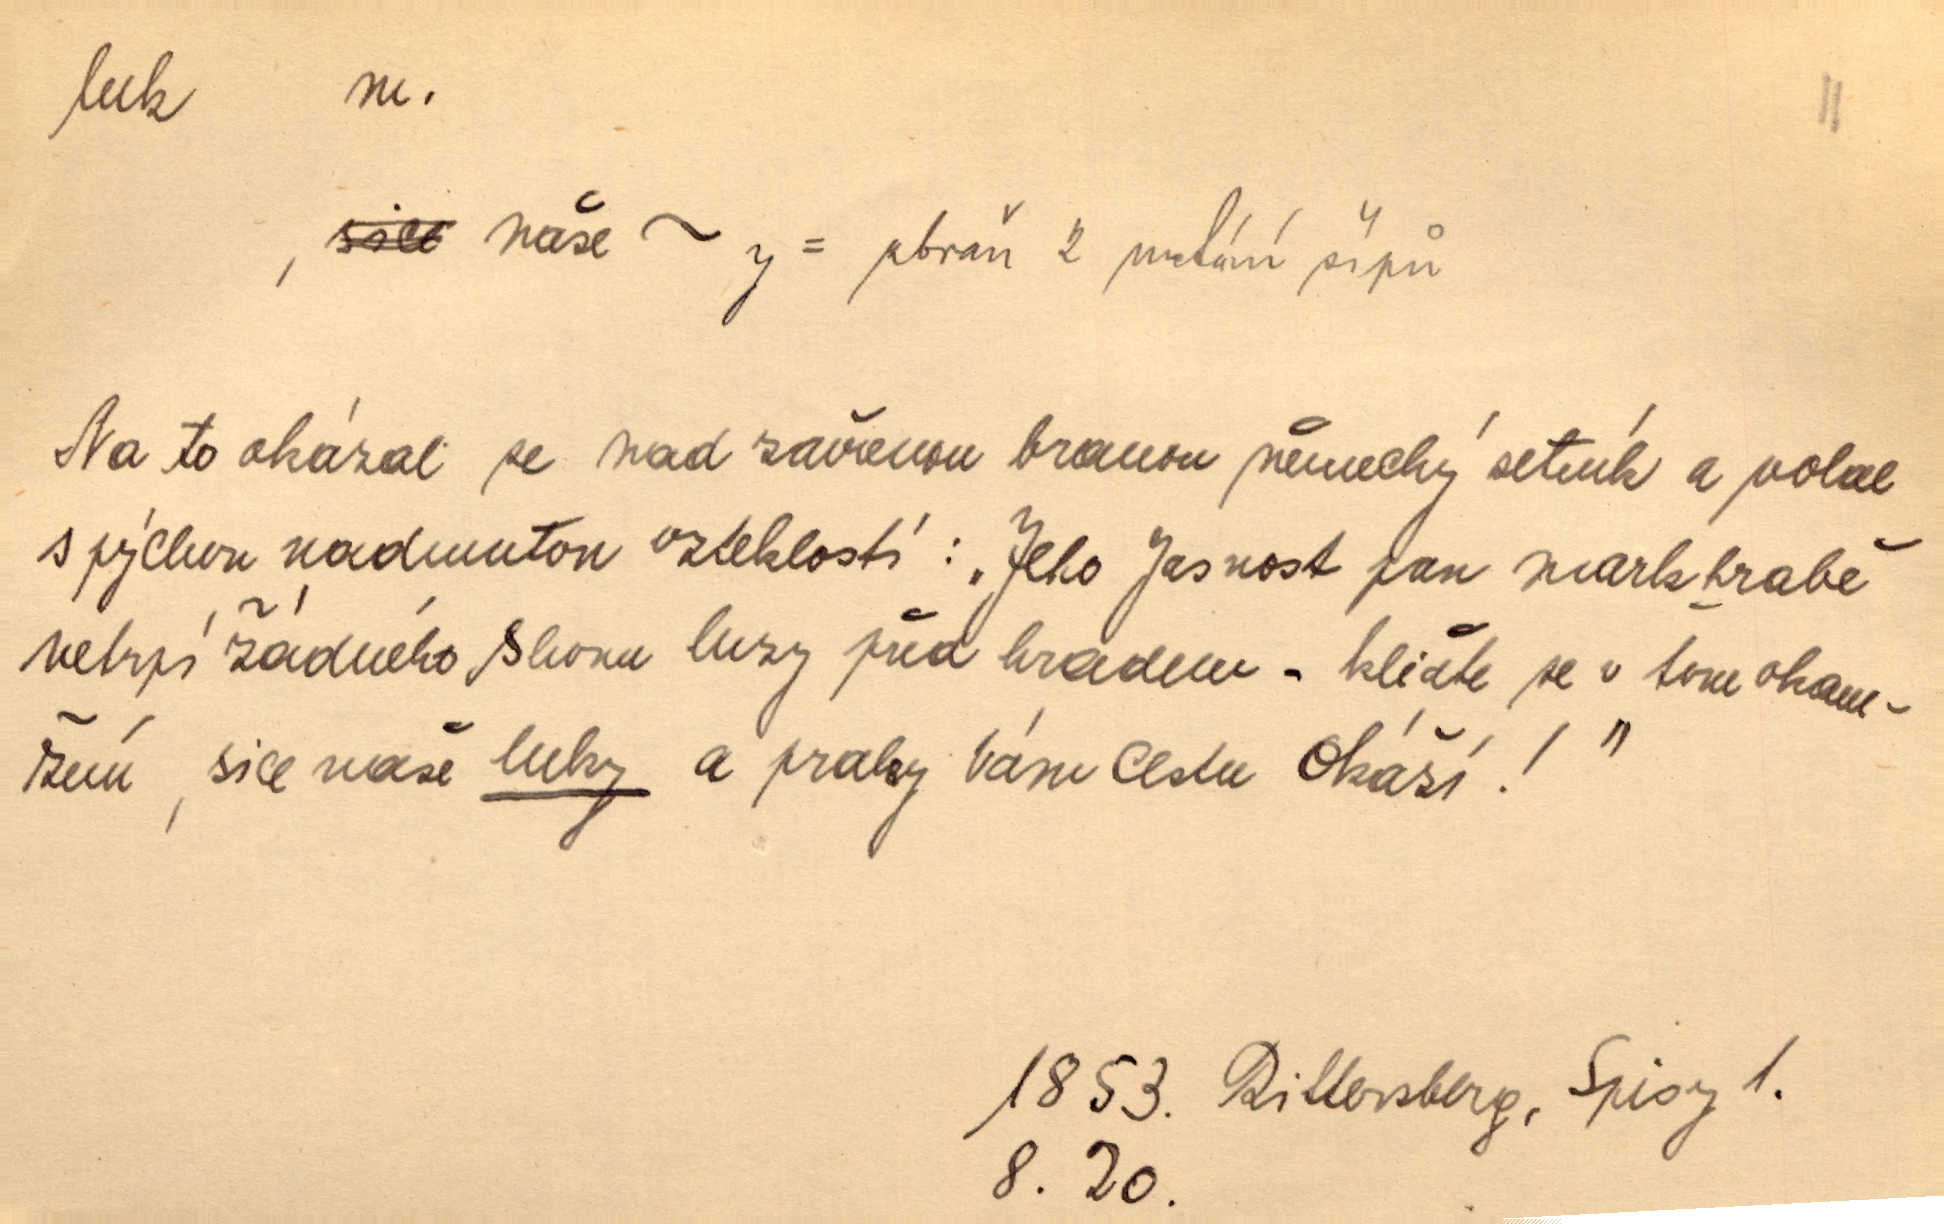 luk m.
, sice naše ~ y = zbraň k metání šípů
Na to okázal se nad zavřenou branou německý setník a volal
s pýchou nadmutou vzteklostí: „Jeho Jasnost pan markhrabě
netrpí žádného shonu luzy před hradem - kliďte se v tom okam-
žení, sice naše luky a praky vám cestu okáží!"
1853. Rittersberg, Spisy 1.
8. 20.